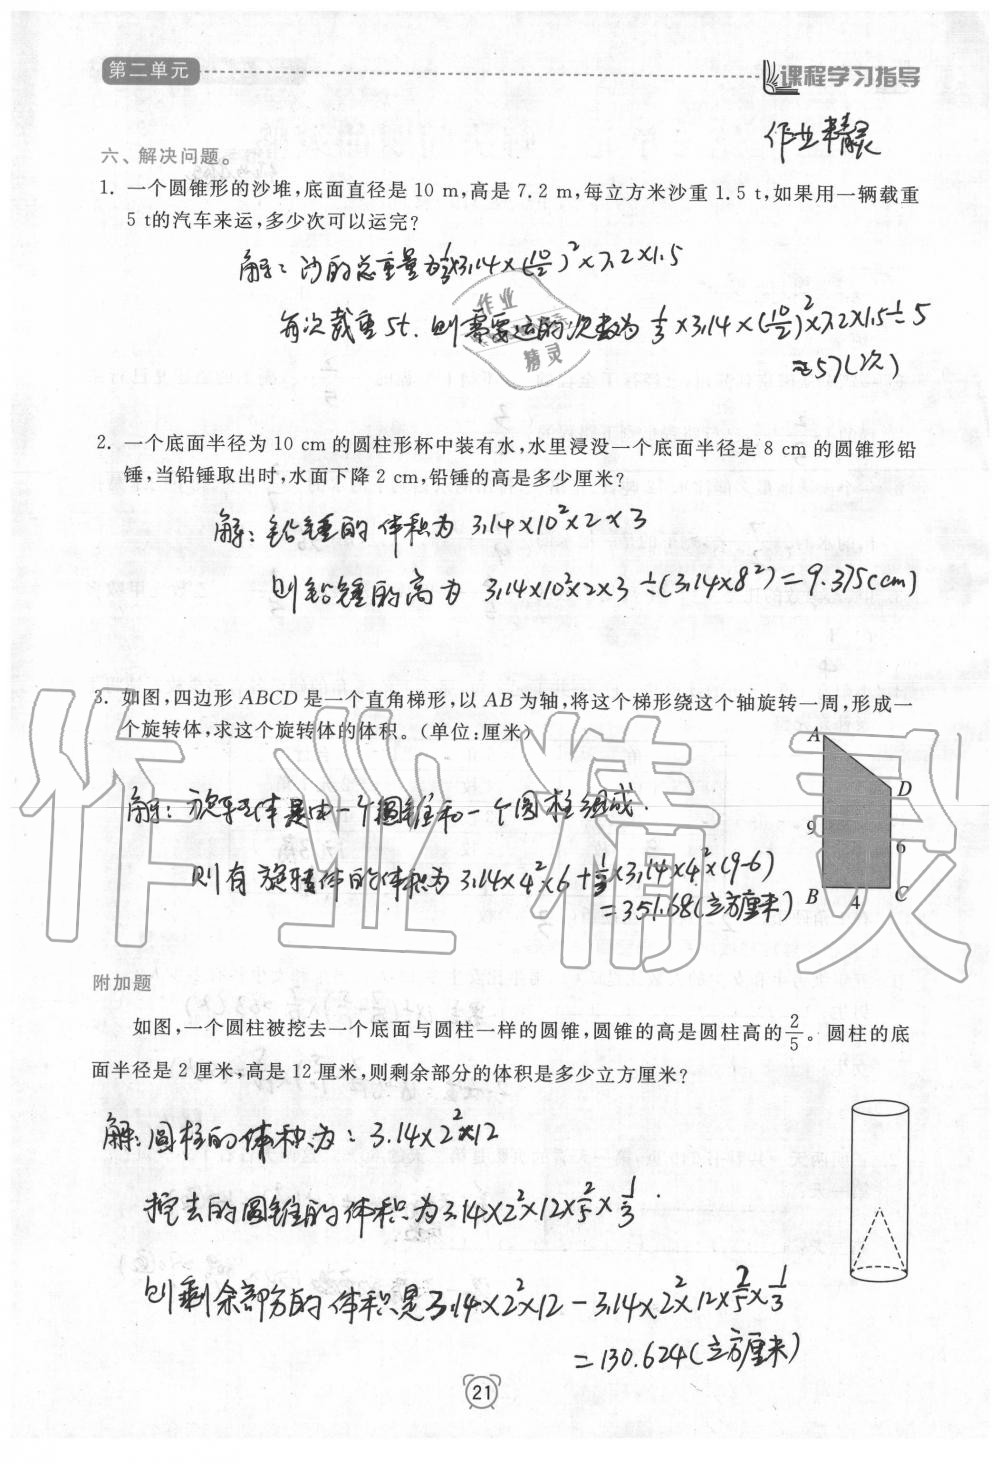 第二单元
课程学习指导
作业精灵
六、解决问题。
1. 一个圆锥形的沙堆,底面直径是 10 m,高是 7.2 m,每立方米沙重 1.5 t,如果用一辆载重
5 t的汽车来运,多少次可以运完?
解:沙的总重量为⅓×3.14×(10/2)²×7.2×1.5
每次载重5t.则需要运的次数为 ⅓×3.14×(10/2)²×7.2×1.5÷5
≈57(次)
作业
精灵
2. 一个底面半径为 10 cm 的圆柱形杯中装有水,水里浸没一个底面半径是 8 cm 的圆锥形铅
锤,当铅锤取出时,水面下降 2 cm,铅锤的高是多少厘米?
解:铅锤的体积为 3.14×10²×2×3
则铅锤的高为 3.14×10²×2×3÷(3.14×8²)=9.375(cm)
3. 如图,四边形 ABCD 是一个直角梯形,以 AB 为轴,将这个梯形绕这个轴旋转一周,形成一
个旋转体,求这个旋转体的体积。(单位:厘米)
A
D
9
6
B
4
C
解:旋转体是由一个圆锥和一个圆柱组成.
则有旋转体的体积为3.14×4²×6+⅓×3.14×4²×(9-6)
=351.68(立方厘米)
作业精灵
附加题
如图,一个圆柱被挖去一个底面与圆柱一样的圆锥,圆锥的高是圆柱高的2/5。圆柱的底
面半径是 2 厘米,高是 12 厘米,则剩余部分的体积是多少立方厘米?
解:圆柱的体积为:3.14×2²×12
挖去的圆锥的体积为3.14×2²×12×2/5×1/3.
则剩余部分的体积是3.14×2²×12-3.14×2²×12×2/5×1/3
=130.624(立方厘米)
21